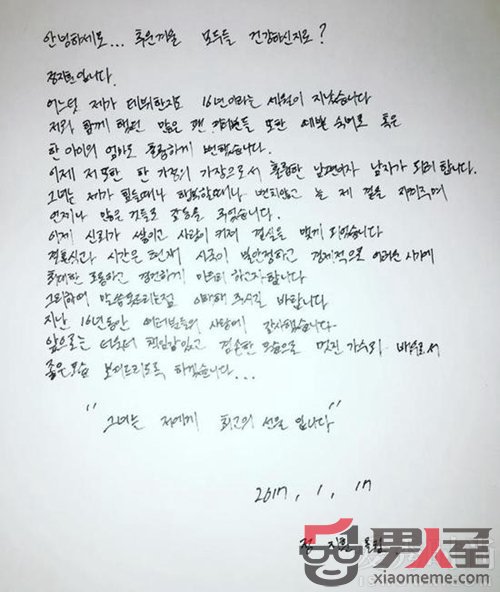 안녕하세요... 추운겨울 모두들 건강하신지요?
정지훈입니다.
어느덧 제가 데뷔한지도 16년이라는 세월이 지났습니다
저와 함께 했던 많은 팬 여러분들 또한 예쁜 숙녀로 혹은
한 아이의 엄마로 훌륭하게 변했습니다.
이제 저 또한 한 가정의 가장으로서 훌륭한 남편이자 남자가 되려 합니다.
그녀는 제가 힘들때나 행복할때나 변치않고 늘 제 곁을 지켜주며
언제나 많은 것들로 감동을 주었습니다.
이제 신뢰가 쌓이고 사랑이 커져 결실을 맺게 되었습니다
결혼식과 시간은 현재 시국이 불안정하고 경제적으로 어려운 시기에
최대한 조용하고 경건하게 마무리 하고자합니다
그리하여 말씀못드리는점 이해해 주시길 바랍니다
지난 16년동안 여러분들의 사랑에 감사했습니다.
앞으로는 더욱더 책임감있고 겸손한 모습으로 멋진 가수와 배우로서
좋은모습 보여드리도록 하겠습니다...
"그녀는 저에게 최고의 선물 입니다"
2017. 1. 17
정 지훈 올림.
男人圣
xiaomeme.com